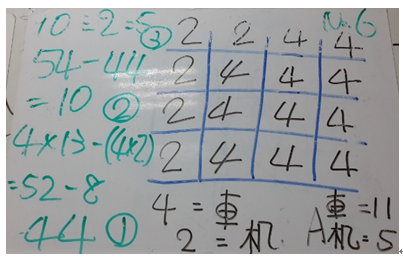 No.6
10÷2=5③
54-44
=10②
4×13-(4×2)
=52-8
44①
2 2 4 4
2 4 4 4
2 4 4 4
2 4 4 4
4=車
2=机
A車=11
机=5